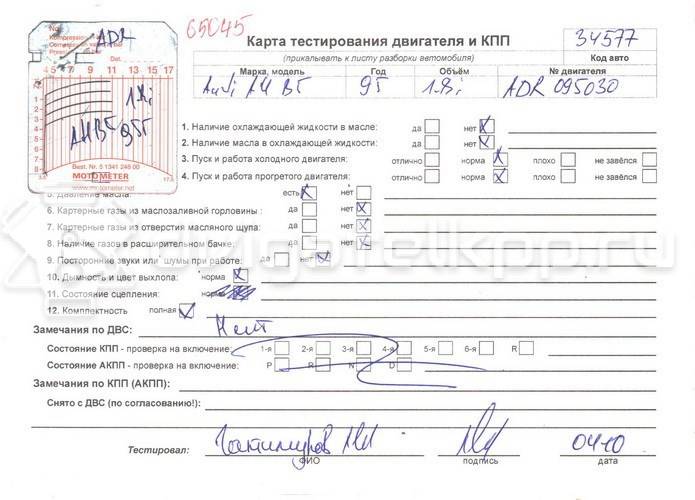 65045
ADR
Dat.
4 5 7 9 11 13 15 17
1.8i
A4B5 95г
Best. Nr. 5 1341 246 00
MOTOMETER
www.motometer.net
Карта тестирования двигателя и КПП
(прикалывать к листу разборки автомобиля)
34577
Код авто
Марка, модель Год Объём № двигателя
Audi A4 B5 95 1.8i ADR 095030
1. Наличие охлаждающей жидкости в масле: да нет
2. Наличие масла в охлаждающей жидкости: да нет
3. Пуск и работа холодного двигателя: отлично норма плохо не завёлся
4. Пуск и работа прогретого двигателя: отлично норма плохо не завёлся
5. Давление масла: есть нет
6. Картерные газы из маслозаливной горловины : да нет
7. Картерные газы из отверстия масляного щупа: да нет
8. Наличие газов в расширительном бачке: да нет
9. Посторонние звуки или шумы при работе: да нет
10. Дымность и цвет выхлопа: норма
11. Состояние сцепления: норма
12. Комплектность полная
Замечания по ДВС: Нет
Состояние КПП - проверка на включение: 1-я 2-я 3-я 4-я 5-я 6-я R
Состояние АКПП - проверка на включение: P R N D
Замечания по КПП (АКПП):
Снято с ДВС (по согласованию!):
Тестировал:
ФИО подпись дата